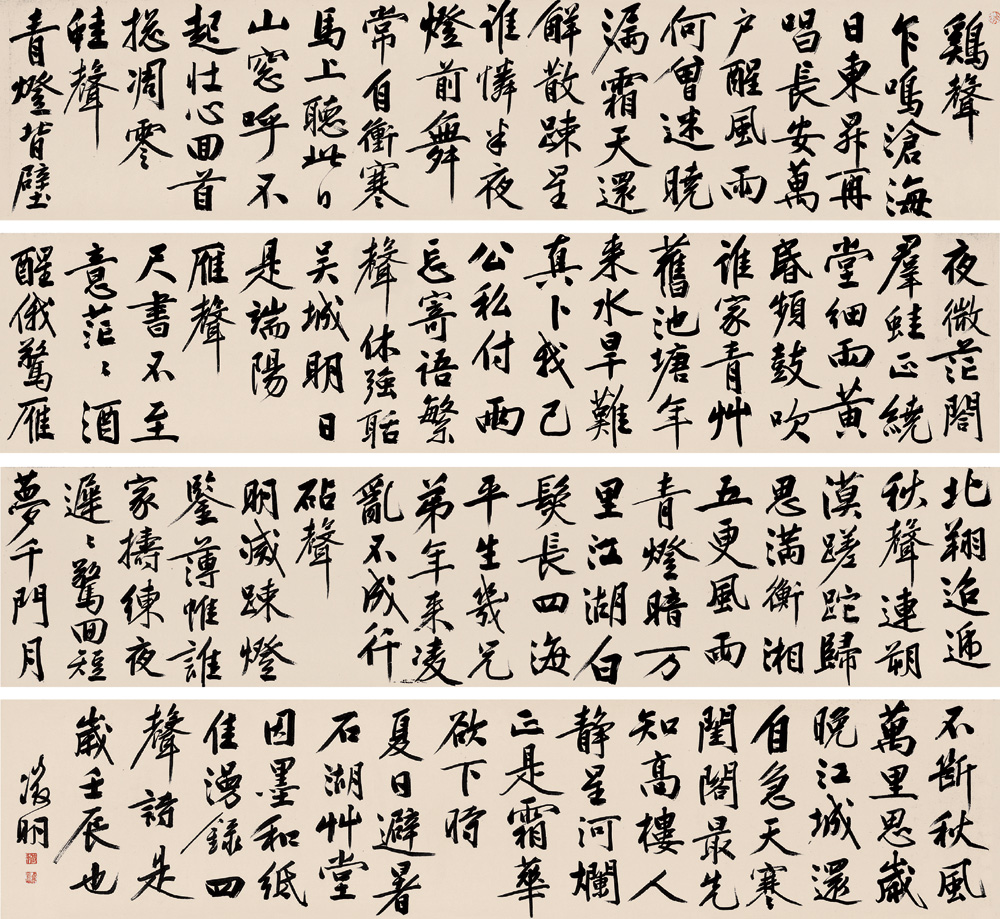 鷄聲
乍鳴滄海
日東昇再
唱長安萬
户醒風雨
何曾迷曉
漏霜天還
解散踈星
誰憐半夜
燈前舞
常自衝寒
馬上聽此日
山窓呼不
起壯心回首
捴凋零
蛙聲
青燈背壁
夜微茫閤
羣蛙正繞
堂細雨黄
昏頻鼓吹
誰家青艸
舊池塘年
来水旱難
真卜我已
公私付兩
忘寄語繁
聲休強聒
吴城明日
是端陽
雁聲
尺書不至
意茫〻酒
醒俄驚雁
北翔迢遞
秋聲連朔
漠蹉跎歸
思滿衡湘
五更風雨
青燈暗万
里江湖白
髮長四海
平生幾兄
弟年来凌
亂不成行
砧聲
明滅踈燈
鑒薄帷誰
家擣練夜
遲〻驚回短
夢千門月
不斷秋風
萬里思歲
晚江城還
自急天寒
閨閤最先
知高樓人
静星河爛
正是霜華
欲下時
夏日避暑
石湖艸堂
因墨和紙
佳漫録四
聲詩是
歲壬辰也
徵明